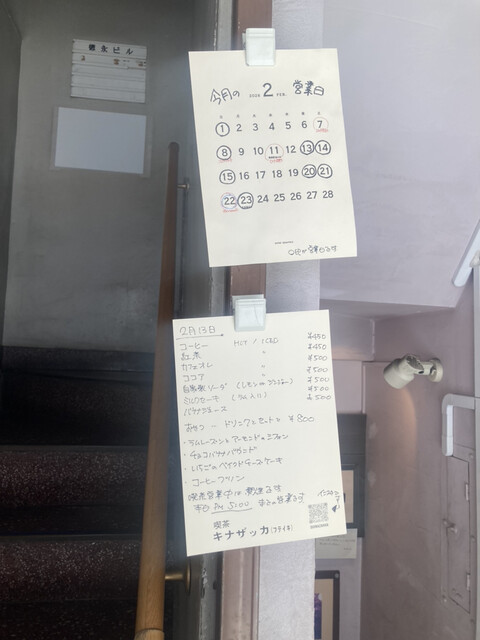 徳永ビル
今月の 2026 2 FEB. 営業日
1 2 3 4 5 6 7
8 9 10 11 12 13 14
15 16 17 18 19 20 21
22 23 24 25 26 27 28
○日が営業日です
2月13日
コーヒー HOT / ICED ¥450
紅茶 〃 ¥450
カフェオレ 〃 ¥500
ココア 〃 ¥500
自家製ソーダ (レモン or ジンジャー) ¥500
ミルクセーキ (りん入り) ¥500
バナナジュース
おやつ ー ドリンクとセットで ¥800
・ラムレーズンとアーモンドのシフォン
・チョコバナナパウンド
・いちごのベイクドチーズケーキ
・コーヒープリン
喫茶営業中は
本日 PM 5:00 までの営業です
インスタ
喫茶
キナザッカ